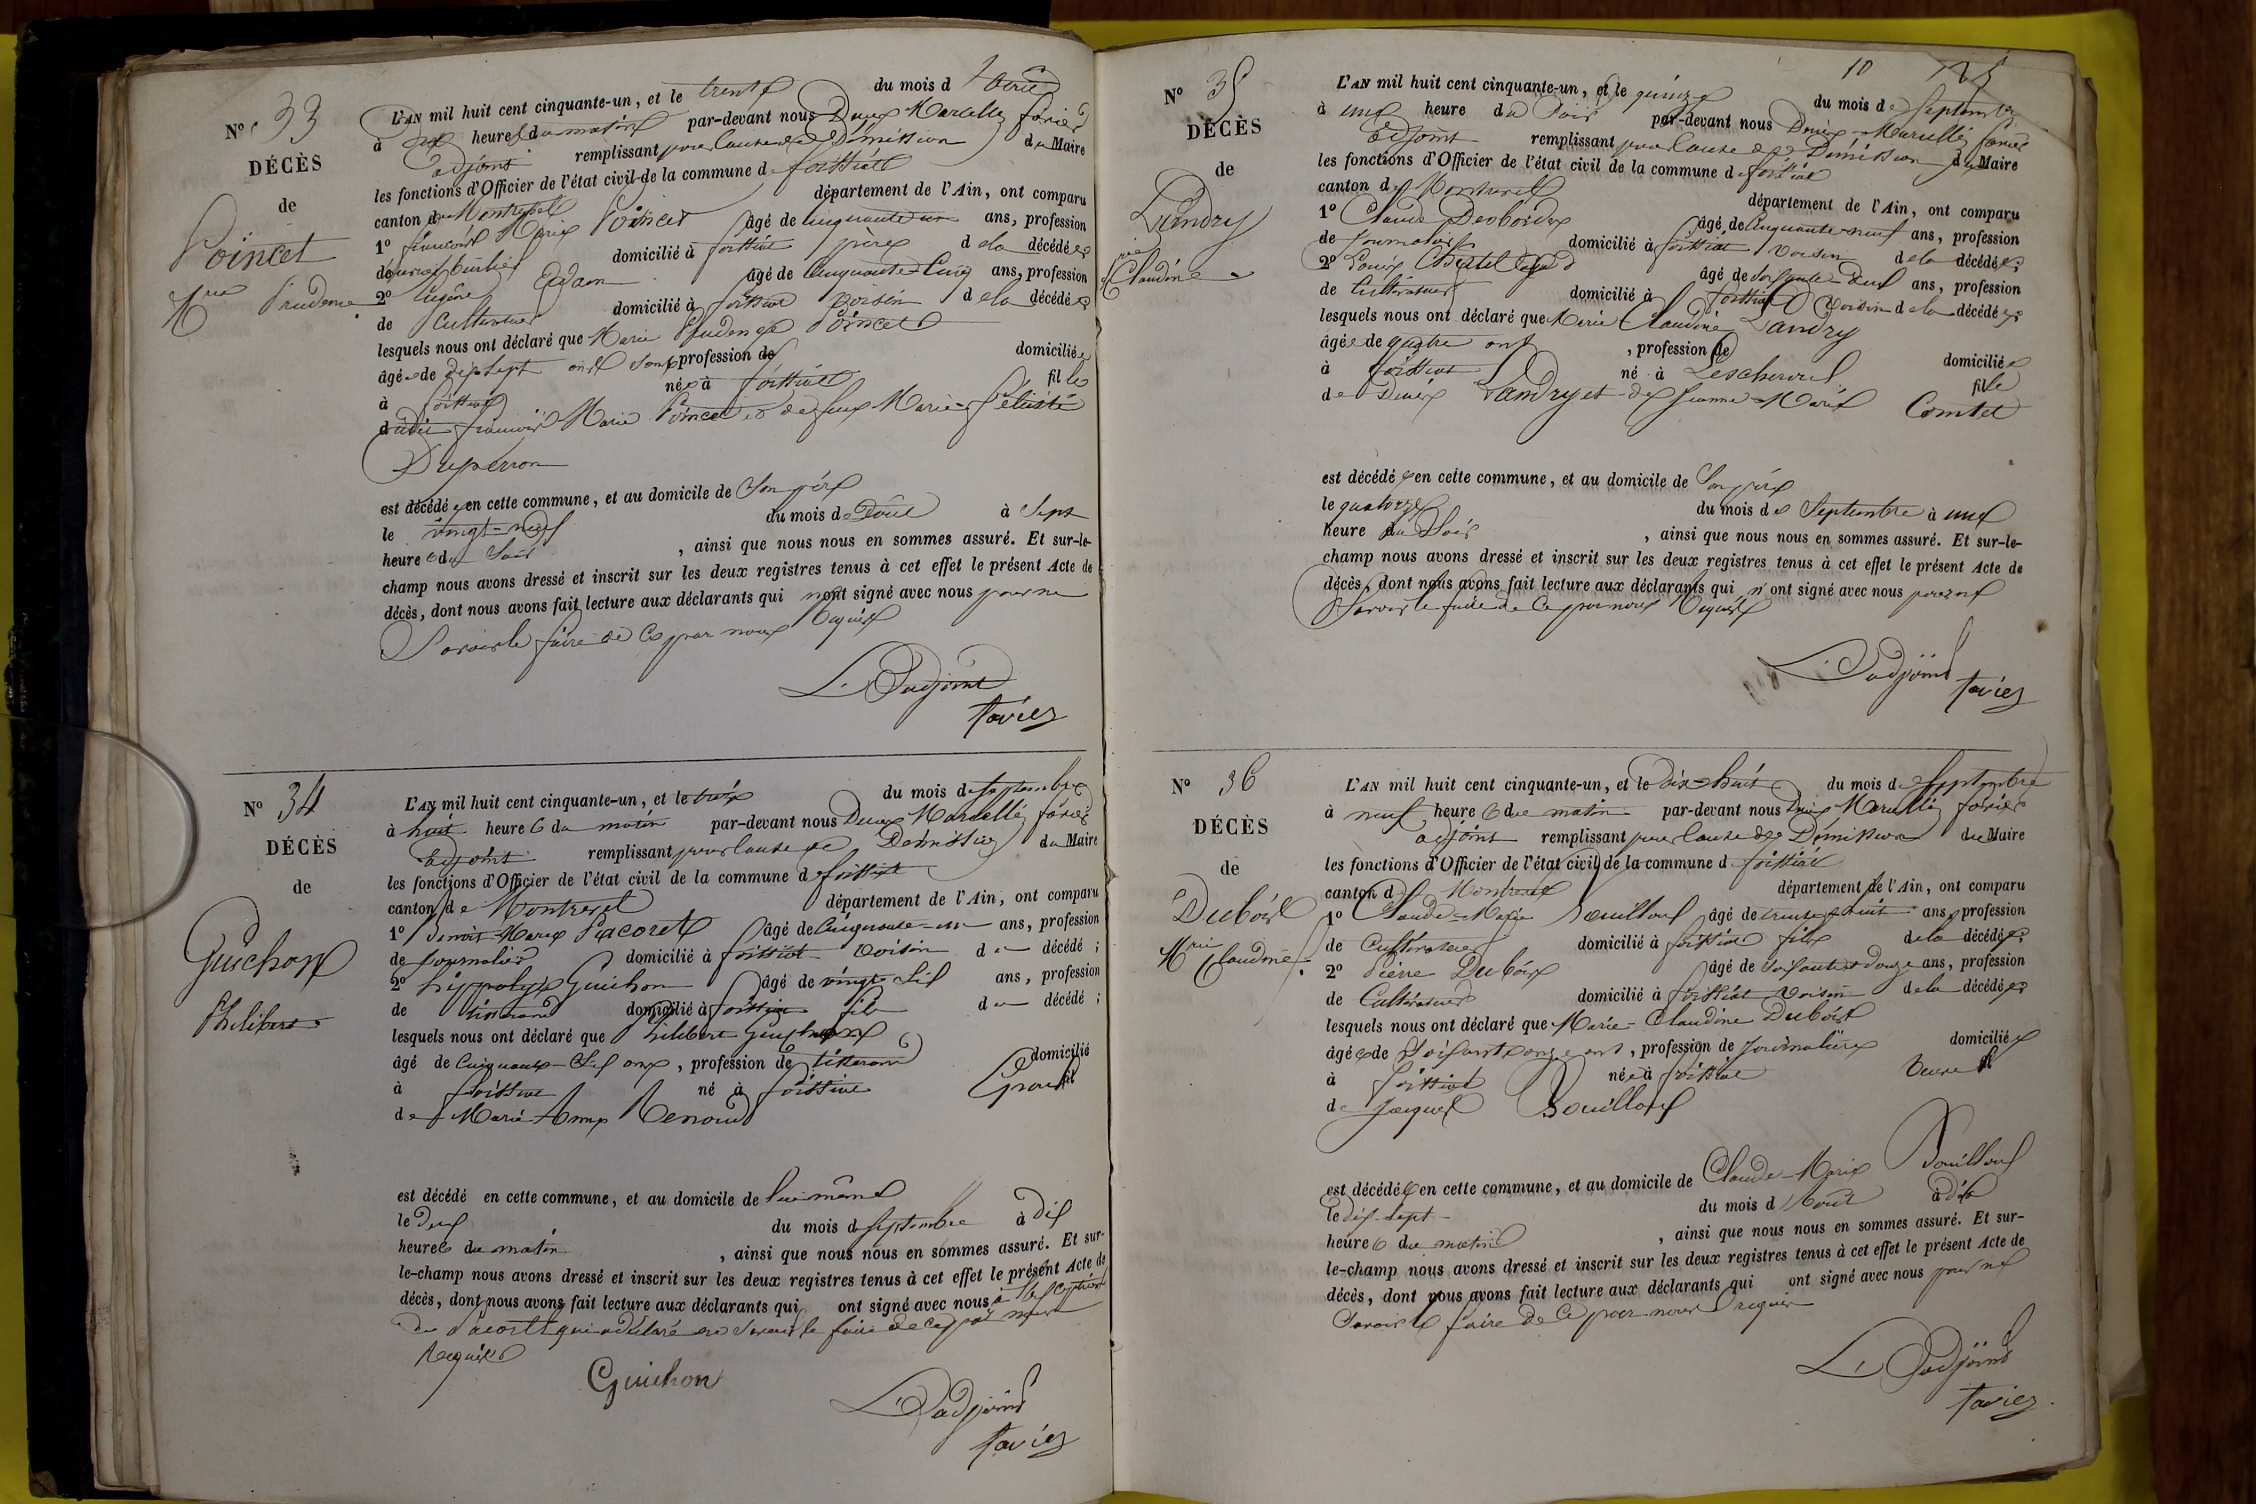 N° 33
DÉCÈS
de
Poincet
Mrie Prudence
L'AN mil huit cent cinquante-un, et le trente du mois d'Août
à heures du matin par-devant nous Marcellin favier
adjoint remplissant pour cause de Démission du Maire
les fonctions d'Officier de l'état civil de la commune de foissiat
canton de Montrevel département de l'Ain, ont comparu
1° françois Marie Poincet âgé de Cinquante un ans, profession
de domicilié à foissiat père de la décédée
2° Eugène âgé de Cinquante-Cinq ans, profession
de Cultivateur domicilié à foissiat voisin de la décédée
lesquels nous ont déclaré que Marie Prudence Poincet
âgée de dix sept ans sans profession de domiciliée
à foissiat née à foissiat fille
dudit françois Marie Poincet et de feue Marie-Félicité
Duperron
est décédée en cette commune, et au domicile de Son père
le vingt-neuf du mois de Août à Sept
heures du Soir, ainsi que nous nous en sommes assuré. Et sur-le-
champ nous avons dressé et inscrit sur les deux registres tenus à cet effet le présent Acte de
décès, dont nous avons fait lecture aux déclarants qui n'ont signé avec nous pour ne
Savoir le faire de ce par nous Requis
L'adjoint
favier
N° 34
DÉCÈS
de
Guichon
Philibert
L'AN mil huit cent cinquante-un, et le trois du mois de Septembre
à huit heures du matin par-devant nous Marcellin favier
adjoint remplissant pour cause de Démission du Maire
les fonctions d'Officier de l'état civil de la commune de foissiat
canton de Montrevel département de l'Ain, ont comparu
1° Benoit-Marie Pacoret âgé de Cinquante-un ans, profession
de Journalier domicilié à foissiat voisin du décédé;
2° hippolyte Guichon âgé de vingt-six ans, profession
de tisserand domicilié à foissiat fils du décédé;
lesquels nous ont déclaré que Philibert Guichon
âgé de Cinquante-Six ans, profession de tisserand domicilié
à foissiat né à foissiat Epoux fil
de Marie-Anne Renoud
est décédé en cette commune, et au domicile de lui même
le Deux du mois de Septembre à dix
heures du matin, ainsi que nous nous en sommes assuré. Et sur-
le-champ nous avons dressé et inscrit sur les deux registres tenus à cet effet le présent Acte de
décès, dont nous avons fait lecture aux déclarants qui ont signé avec nous à l'Exception
de Pacoret qui a déclaré ne Savoir le faire de ce par nous
Requis
Guichon
L'adjoint
favier
10
N° 35
DÉCÈS
de
Landry
rie
Claudine
L'AN mil huit cent cinquante-un, et le quinze du mois de Septembre
à une heure du Soir par-devant nous Marcellin favier
adjoint remplissant pour cause de Démission du Maire
les fonctions d'Officier de l'état civil de la commune de foissiat
canton de Montrevel département de l'Ain, ont comparu
1° Claude Desbordes âgé de Cinquante-neuf ans, profession
de Journalier domicilié à foissiat voisin de la décédée;
2° Louis âgé de Soixante-deux ans, profession
de Cultivateur domicilié à foissiat voisin de la décédée;
lesquels nous ont déclaré que Marie Claudine Landry
âgée de quatre ans, profession de domiciliée
à foissiat né à Lescheroux fille
de Denis Landry et de Jeanne-Marie Comtet
est décédée en cette commune, et au domicile de Son père
le quatorze du mois de Septembre à une
heure du Soir, ainsi que nous nous en sommes assuré. Et sur-le-
champ nous avons dressé et inscrit sur les deux registres tenus à cet effet le présent Acte de
décès, dont nous avons fait lecture aux déclarants qui n'ont signé avec nous pour ne
Savoir le faire de ce par nous Requis
L'adjoint
favier
N° 36
DÉCÈS
de
Dubois
Mrie Claudine
L'AN mil huit cent cinquante-un, et le Dix-huit du mois de Septembre
à neuf heures du matin par-devant nous Marcellin favier
adjoint remplissant pour cause de Démission du Maire
les fonctions d'Officier de l'état civil de la commune de foissiat
canton de Montrevel département de l'Ain, ont comparu
1° Claude-Marie Bouilloux âgé de trente huit ans, profession
de Cultivateur domicilié à foissiat fils de la décédée;
2° Pierre Dubois âgé de Soixante douze ans, profession
de Cultivateur domicilié à foissiat voisin de la décédée;
lesquels nous ont déclaré que Marie-Claudine Dubois
âgée de Soixante onze ans, profession de Journalière domiciliée
à foissiat née à foissiat veuve fil
de Jacques Bouilloux
est décédée en cette commune, et au domicile de Claude-Marie Bouilloux
le dix-sept du mois d'Août à dix
heures du matin, ainsi que nous nous en sommes assuré. Et sur-
le-champ nous avons dressé et inscrit sur les deux registres tenus à cet effet le présent Acte de
décès, dont nous avons fait lecture aux déclarants qui ont signé avec nous pour ne
Savoir le faire de ce par nous requis
L'adjoint
favier